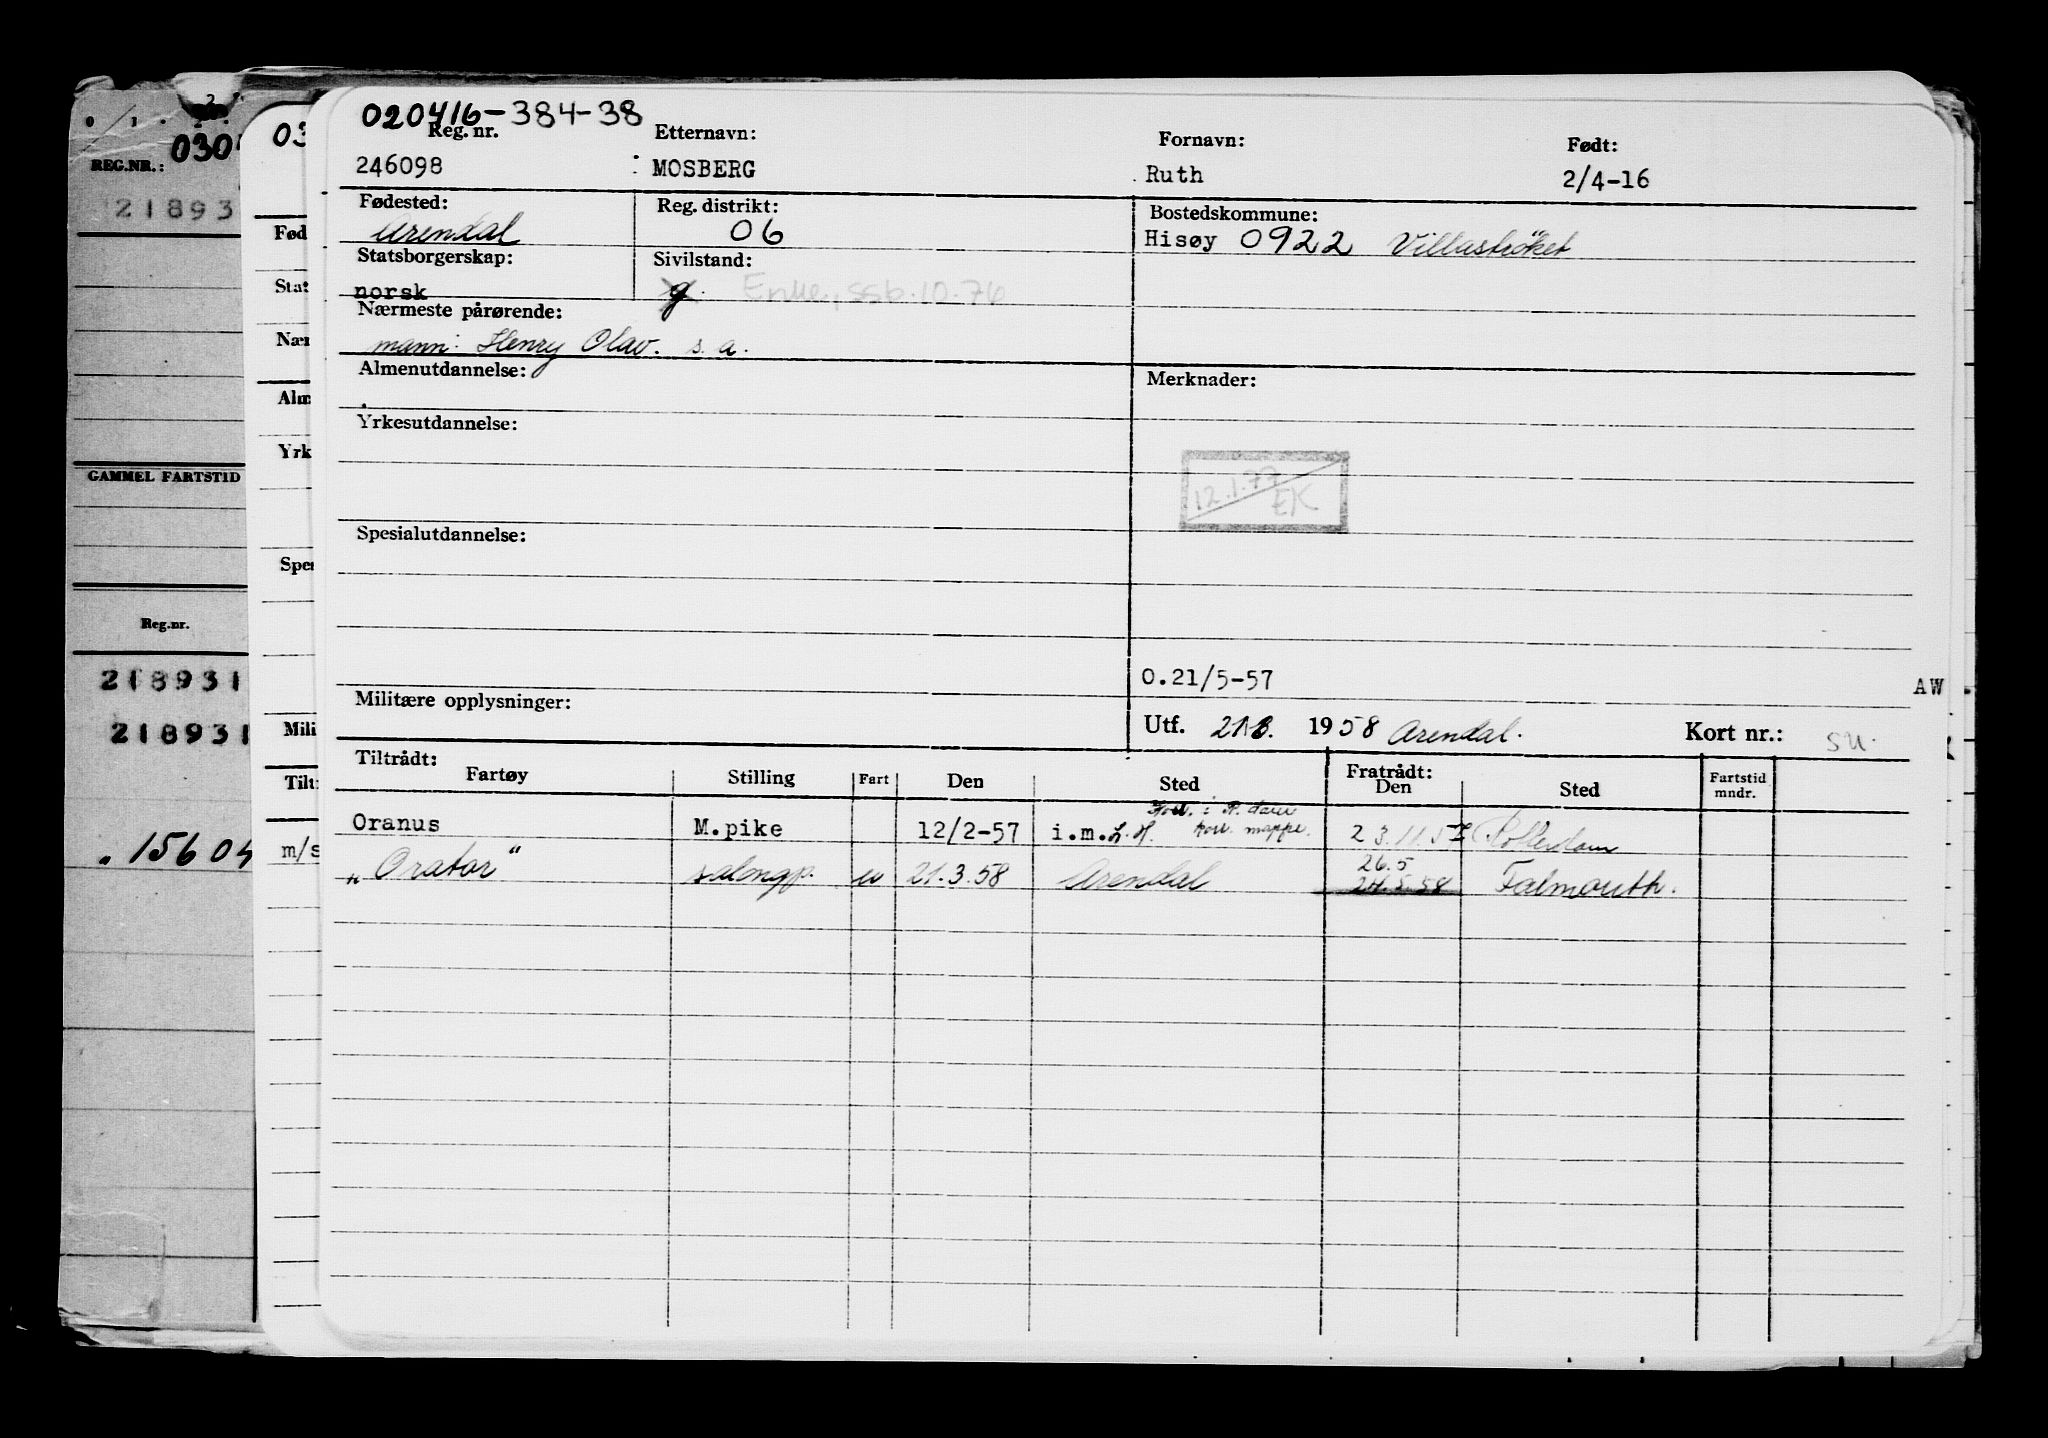 020416-384-38
Reg. nr. Etternavn: Fornavn: Født:
246098 MOSBERG Ruth 2/4-16
Fødested: Reg. distrikt: Bostedskommune:
Arendal 06 Hisøy 0922 Villastrøket
Statsborgerskap: Sivilstand:
norsk g. Enke, ssb.10.76
Nærmeste pårørende:
mann: Henry Olav. s. a.
Almenutdannelse: Merknader:
Yrkesutdannelse:
12.1.77
EK
Spesialutdannelse:
O.21/5-57 AW
Militære opplysninger:
Utf. 1958 Arendal. Kort nr.: su.
Tiltrådt: Fratrådt:
Fartøy Stilling Fart Den Sted Den Sted Fartstid mndr.
Oranus M.pike 12/2-57 i.m. 23.11.57 Rotterdam
"Orator" salongp. u 21.3.58 Arendal 26.5 24.5.58 Falmouth.
2
0 1
REG.NR.: 030
21893
GAMMEL FARTSTID
Reg.nr.
218931
218931
15604
03
Fød
Stat
Nær
Alm
Yrk
Spes
Mili
Tilt
m/s